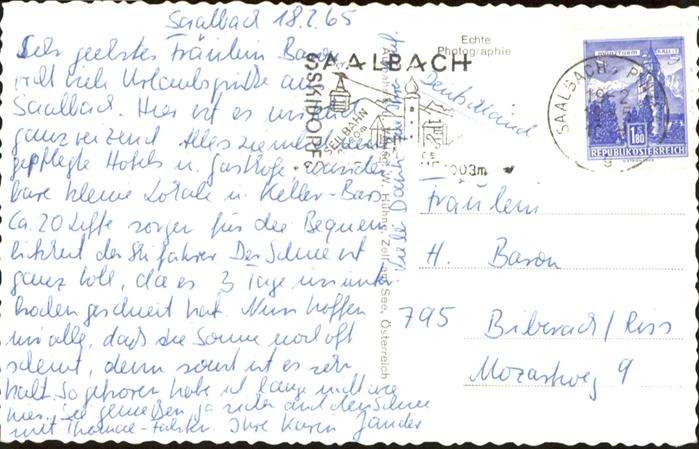 Saalbach 18.2.65
Sehr geehrtes Fräulein Baron
viele Urlaubsgrüße aus
Saalbach. Hier ist es
ganz reizend. Alles
gepflegte Hotels u. Gasthöfe, wunder-
bare kleine Lokale u. Keller-Bars
Ca. 20 Lifte sorgen für die Bequem-
lichkeit der Skifahrer. Der Schnee ist
ganz toll, da es 3 Tage ununter-
brochen geschneit hat. Nun hoffen
wir alle, daß die Sonne noch oft
scheint, denn sonst ist es sehr
kalt. So gefroren habe ich lange nicht wie
hier. Sie genießen ja sicher auch den Schnee
mit Ihre Karin
Viele Dank für Ihre
Echte
Photographie
SAALBACH
SKIDORF
SEILBAHN
1003m
SAALBACH
1.80
REPUBLIK ÖSTERREICH
Zell am See, Österreich
Deutschland
Fräulein
H. Baron
795 Biberach/Riss
Mozartweg 9